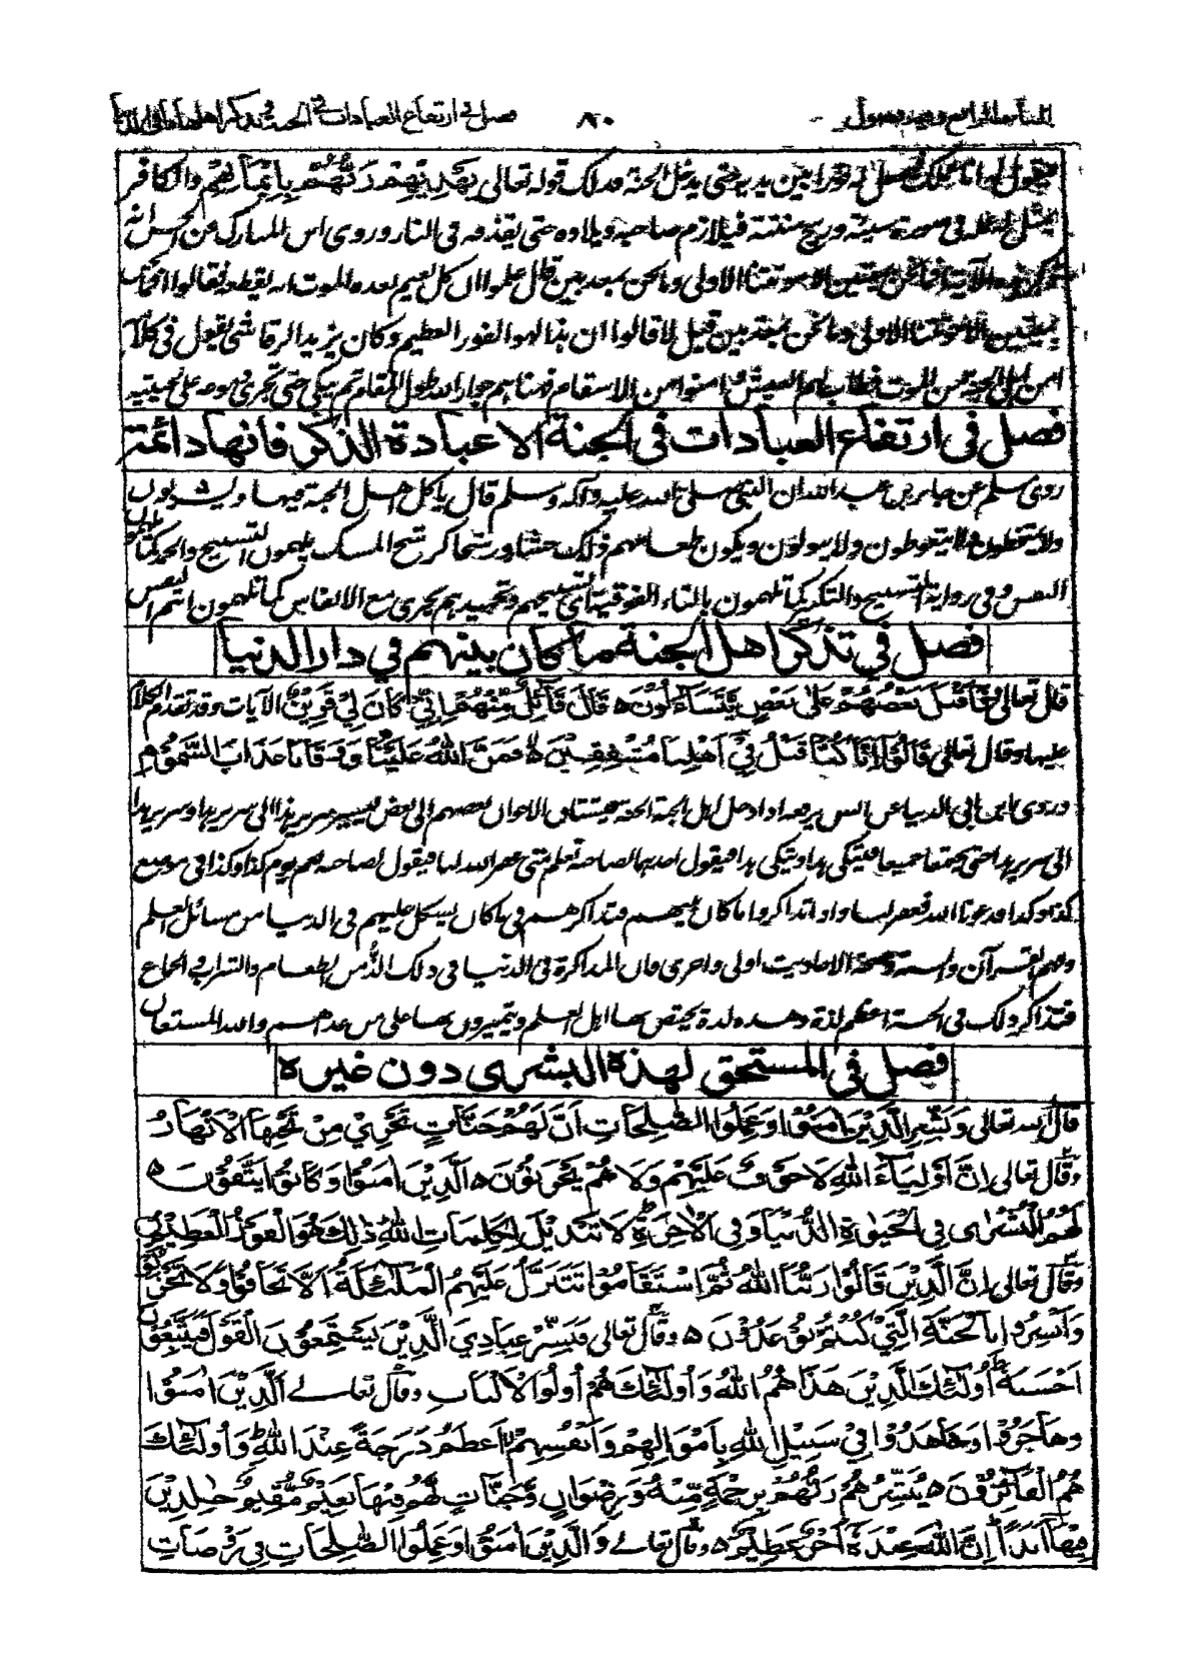 فصل في ارتفاع العبادات في الجنة
٨٠
فيقول له انا عملك فيجعل له نورا بين يديه حتى يدخل الجنة فذلك قوله تعالى يَهْدِيْهِمْ رَبُّهُمْ بِاِيْمَانِهِمْ والكافر
يمثل له عمله في صورة سيئة وريح منتنة فيلازم صاحبه ويلاده حتى يقذفه في النار وروى ابن المبارك عن الحسن انه
الا موتتنا الاولى وما نحن بمعذبين قال علموا ان كل نعيم بعده الموت انه يقطعه فقالوا افما نحن
بميتين الا موتتنا الاولى وما نحن بمعذبين قيل لا قالوا ان هذا لهو الفوز العظيم وكان يزيد الرقاشي يقول في كلامه
امن اهل الجنة من الموت فطاب لهم العيش وامنوا من الاسقام فهناهم في جوار الله طول المقام ثم يبكي حتى تجري دموعه على لحيته
فصل في ارتفاع العبادات في الجنة الا عبادة الذكر فانها دائمة
روى مسلم عن جابر بن عبد الله ان النبي صلى الله عليه وآله وسلم قال يأكل اهل الجنة فيها ويشربون
ولا يمتخطون ولا يتغوطون ولا يبولون ويكون طعامهم ذلك جشاء ورشحا كرشح المسك يلهمون التسبيح والحمد كما يلهمون
النفس وفي رواية التسبيح والتكبير كما تلهمون بالتاء الفوقية اي تسبيحهم وتحميدهم يجري مع الانفاس كما تلهمون انتم النفس
فصل في تذكر اهل الجنة ما كان بينهم في دار الدنيا
قال تعالى فَاَقْبَلَ بَعْضُهُمْ عَلٰى بَعْضٍ يَّتَسَاۤءَلُوْنَ ه قَالَ قَاۤئِلٌ مِّنْهُمْ اِنِّيْ كَانَ لِيْ قَرِيْنٌ الآيات وقد تقدم الكلام
عليها وقال تعالى قَالُوْۤا اِنَّا كُنَّا قَبْلُ فِيْۤ اَهْلِنَا مُشْفِقِيْنَ ه فَمَنَّ اللّٰهُ عَلَيْنَا وَوَقَانَا عَذَابَ السَّمُوْمِ ه
وروى ابن ابي الدنيا عن انس يرفعه اذا دخل اهل الجنة الجنة فيشتاق الاخوان بعضهم الى بعض فيسير سرير هذا الى سرير هذا وسرير هذا
الى سرير هذا حتى يجتمعا جميعا فيتكي هذا ويتكي هذا فيقول احدهما لصاحبه تعلم متى غفر الله لنا فيقول لصاحبه نعم يوم كذا وكذا في موضع
كذا وكذا فدعونا الله فغفر لنا واذا تذاكروا ما كان بينهم فتذاكرهم في ما كان يشكل عليهم في الدنيا من مسائل العلم
وفهم القرآن والسنة وصحة الاحاديث اولى واحرى فان المذاكرة في الدنيا في ذلك الذ من الطعام والشراب والجماع
فتذاكر ذلك في الجنة اعظم لذة وهذه لذة يختص بها اهل العلم ويتميزون بها على من عداهم والله المستعان
فصل في المستحق لهذه البشرى دون غيره
قال الله تعالى وَبَشِّرِ الَّذِيْنَ اٰمَنُوْا وَعَمِلُوا الصّٰلِحَاتِ اَنَّ لَهُمْ جَنَّاتٍ تَجْرِيْ مِنْ تَحْتِهَا الْاَنْهَارُ
وقال تعالى اِنَّ اَوْلِيَاۤءَ اللّٰهِ لَا خَوْفٌ عَلَيْهِمْ وَلَا هُمْ يَحْزَنُوْنَ ه الَّذِيْنَ اٰمَنُوْا وَكَانُوْا يَتَّقُوْنَ ه
لَهُمُ الْبُشْرٰى فِي الْحَيٰوةِ الدُّنْيَا وَفِي الْاٰخِرَةِ لَا تَبْدِيْلَ لِكَلِمَاتِ اللّٰهِ ذٰلِكَ هُوَ الْفَوْزُ الْعَظِيْمُ
وقال تعالى اِنَّ الَّذِيْنَ قَالُوْا رَبُّنَا اللّٰهُ ثُمَّ اسْتَقَامُوْا تَتَنَزَّلُ عَلَيْهِمُ الْمَلٰۤئِكَةُ اَلَّا تَخَافُوْا وَلَا تَحْزَنُوْا
وَاَبْشِرُوْا بِالْجَنَّةِ الَّتِيْ كُنْتُمْ تُوْعَدُوْنَ ه وقال تعالى فَبَشِّرْ عِبَادِيَ الَّذِيْنَ يَسْتَمِعُوْنَ الْقَوْلَ فَيَتَّبِعُوْنَ
اَحْسَنَهٗ اُولٰۤئِكَ الَّذِيْنَ هَدٰاهُمُ اللّٰهُ وَاُولٰۤئِكَ هُمْ اُولُوا الْاَلْبَابِ وقال تعالى اَلَّذِيْنَ اٰمَنُوْا
وَهَاجَرُوْا وَجَاهَدُوْا فِيْ سَبِيْلِ اللّٰهِ بِاَمْوَالِهِمْ وَاَنْفُسِهِمْ اَعْظَمُ دَرَجَةً عِنْدَ اللّٰهِ وَاُولٰۤئِكَ
هُمُ الْفَاۤئِزُوْنَ ه يُبَشِّرُهُمْ رَبُّهُمْ بِرَحْمَةٍ مِّنْهُ وَرِضْوَانٍ وَّجَنَّاتٍ لَّهُمْ فِيْهَا نَعِيْمٌ مُّقِيْمٌ خٰلِدِيْنَ
فِيْهَاۤ اَبَدًا اِنَّ اللّٰهَ عِنْدَهٗۤ اَجْرٌ عَظِيْمٌ ه وقال تعالى وَالَّذِيْنَ اٰمَنُوْا وَعَمِلُوا الصّٰلِحَاتِ فِيْ رَوْضَاتِ